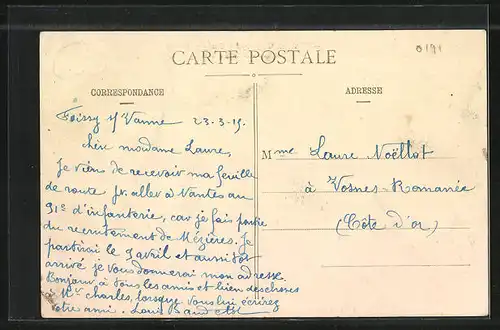 CARTE POSTALE
0191
CORRESPONDANCE
ADRESSE
Foissy s/ Vanne 23-3-15.
Chère madame Laure,
Je viens de recevoir ma feuille
de route pr. aller à Nantes au
91e d'infanterie, car je fais partie
du recrutement de Mézières. Je
partirai le 9 avril et aussitôt
arrivé je vous donnerai mon adresse.
Bonjour à tous les amis et bien des choses
à Mr charles, lorsque vous lui écrirez
votre ami. Louis
Mme Laure Noëllot
à Vosnes-Romanée
(Côte d'or)